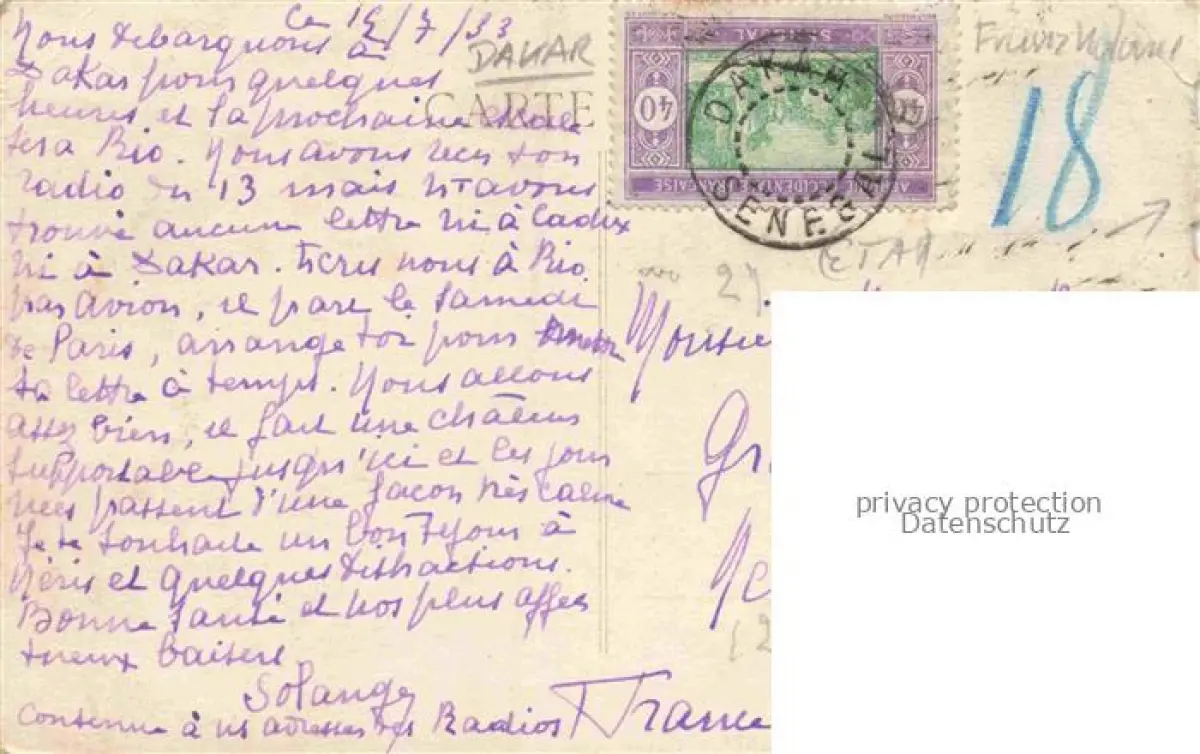 Ce 15/7/33
Nous debarquons à
Dakar pour quelques
heures et la prochaine escale
sera Rio. Nous avons reçu ton
radio du 13 mais n'avons
trouvé aucune lettre ni à Cadix
ni à Dakar. Ecris nous à Rio
par avion, il part le samedi
de Paris, arrange toi pour mettre
ta lettre à temps. Nous allons
assez bien, il fait une chaleur
supportable jusqu'ici et les jour
nées passent d'une façon très calme
Je te souhaite un bon séjour à
Néris et quelques distractions.
Bonne santé et nos plus affec
tueux baisers
Solange
continue à ns adresser des Radios
DAKAR
CARTE
40
SENEGAL
AFRIQUE OCCIDENTALE FRANÇAISE
DAKAR
SENEGAL
18
ETAT
27
Monsie
Gr
Ne
12
France
privacy protection
Datenschutz